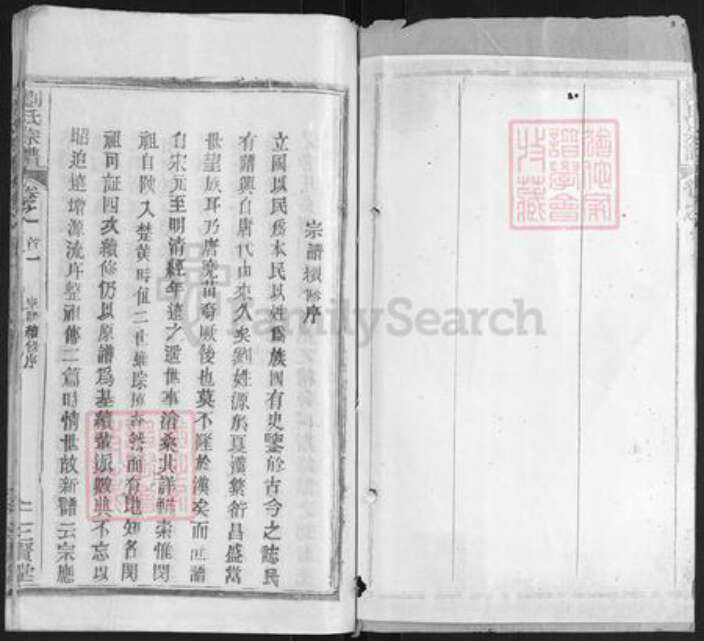 宗譜續修序
立國以民爲本民以姓爲族國有史鑒於古今之誌民
有譜興自唐代由來久矣劉姓源於夏漢蕃衍昌盛當
世望族耳乃唐堯苗裔厥後也莫不隆於漢矣而 譜
自宋元至明清經年遠之遷世事滄桑其詳難索惟閱
祖自陝入楚黃時値二世 踪 然而有地知名閱
祖可証四次續修仍以原譜爲基續輩派數典不忘以
昭追遠增源流序整祖傳二篇時情世故新譜云宗應
劉氏宗譜
卷之一
首一
宗譜續修序
一
三賢堂
猶他家譜學會收藏
FamilySearch